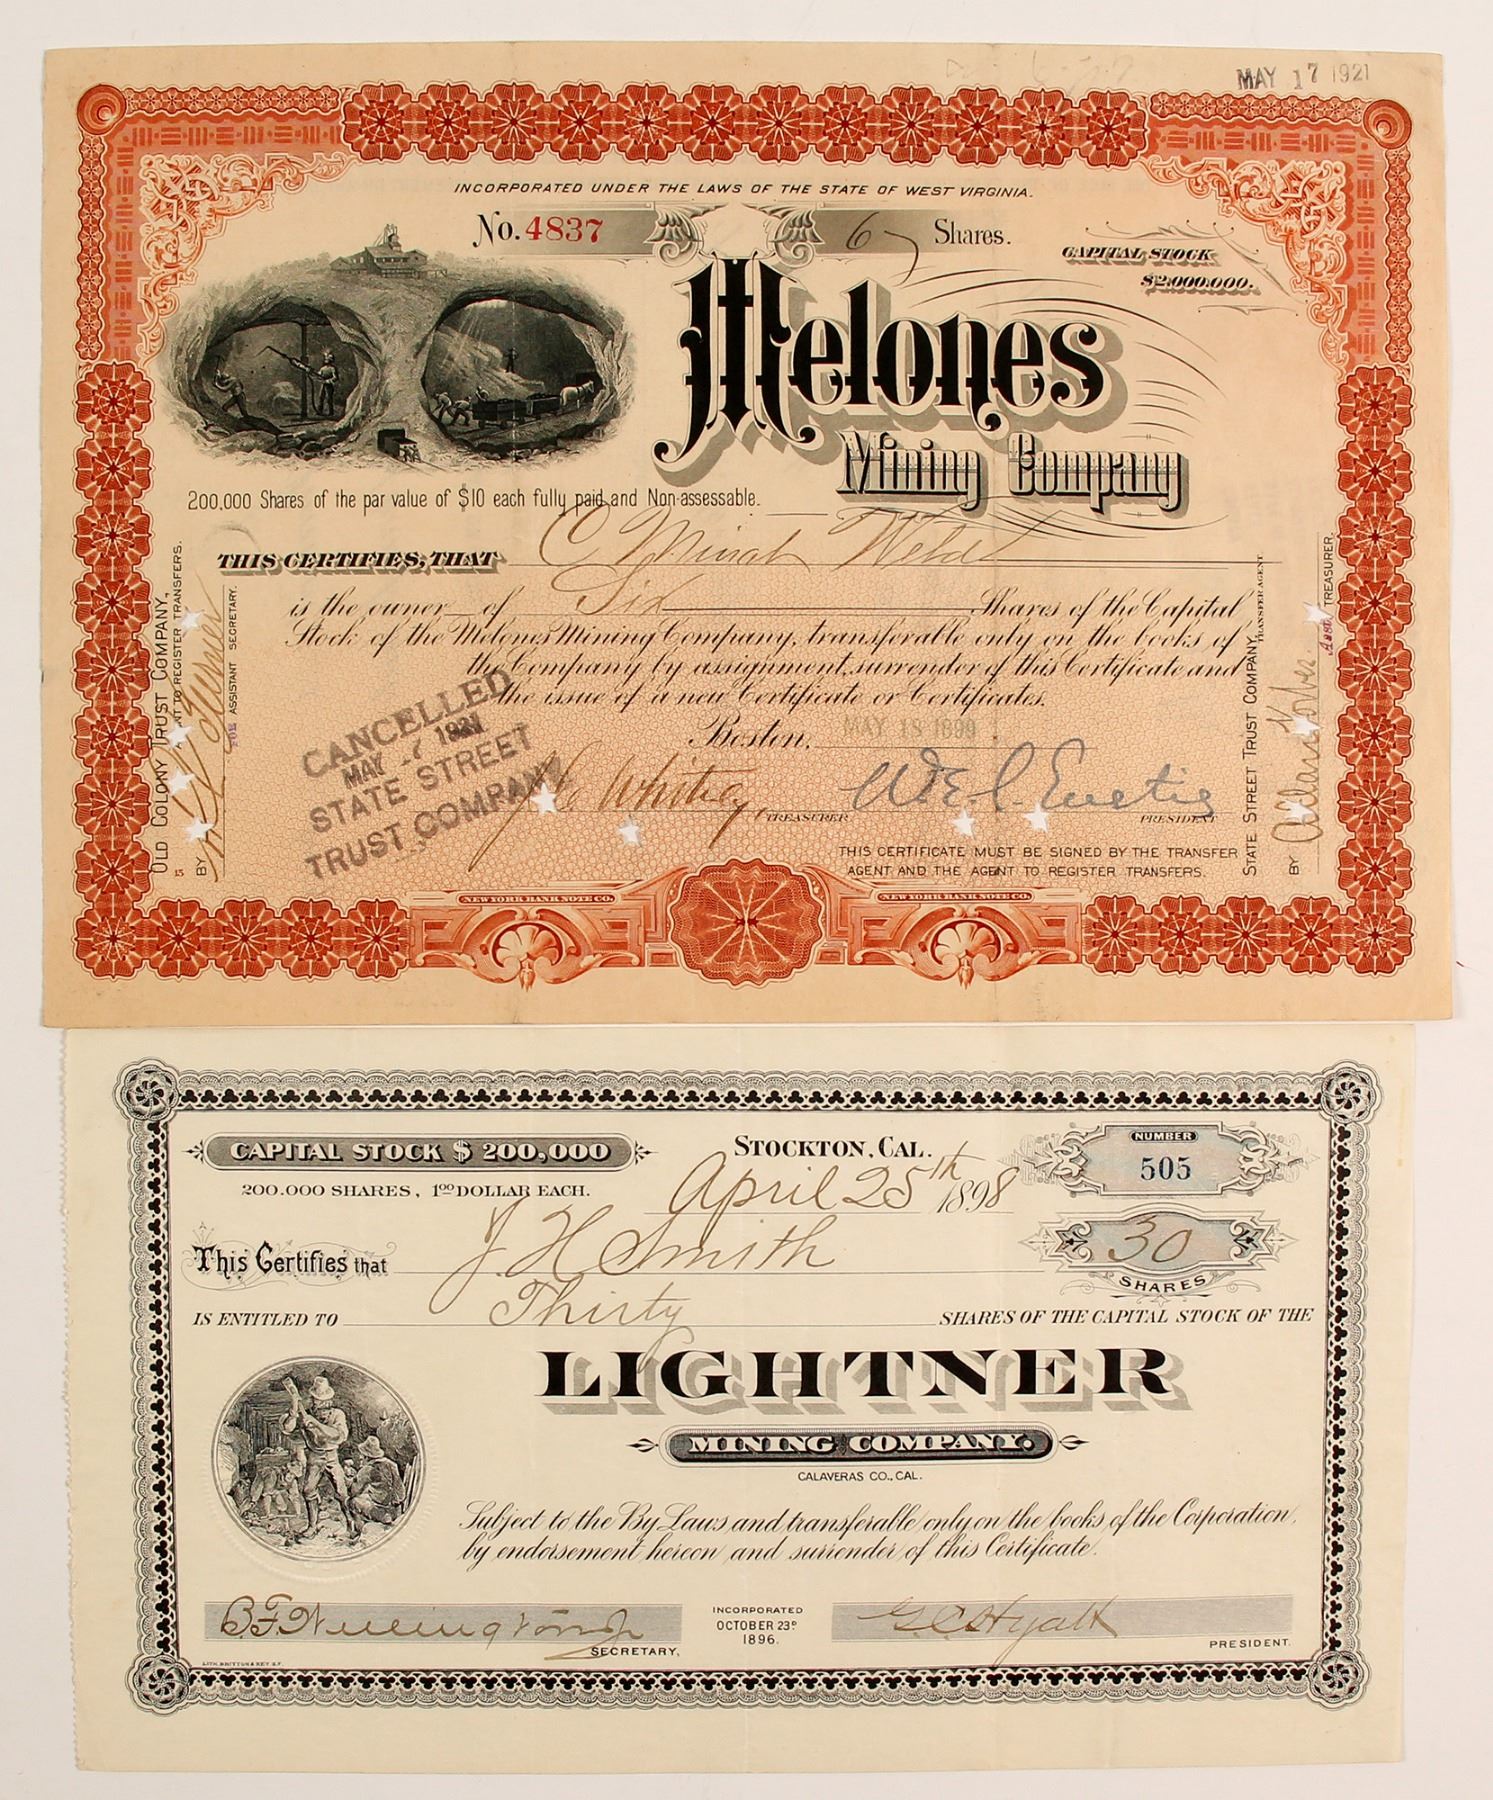 MAY 17 1921
INCORPORATED UNDER THE LAWS OF THE STATE OF WEST VIRGINIA.
No. 4837
6 Shares.
CAPITAL STOCK
$2.000.000.
Melones
Mining Company
200,000 Shares of the par value of $10 each fully paid and Non-assessable.
THIS CERTIFIES, THAT C Minot Weld
is the owner of Six Shares of the Capital
Stock of the Melones Mining Company, transferable only on the books of
the Company by assignment, surrender of this Certificate and
the issue of a new Certificate or Certificates.
Boston, MAY 18 1899
CANCELLED
MAY 17 1921
STATE STREET
TRUST COMPANY
TREASURER
PRESIDENT
THIS CERTIFICATE MUST BE SIGNED BY THE TRANSFER
AGENT AND THE AGENT TO REGISTER TRANSFERS.
OLD COLONY TRUST COMPANY,
AGENT TO REGISTER TRANSFERS.
BY
ASSISTANT SECRETARY.
15
STATE STREET TRUST COMPANY,
TRANSFER AGENT
BY
Asst. TREASURER.
NEW YORK BANK NOTE CO.
NEW YORK BANK NOTE CO.
CAPITAL STOCK $ 200,000
200.000 SHARES, 1.00 DOLLAR EACH.
STOCKTON, CAL.
April 25th 1898
NUMBER
505
30
SHARES
This Certifies that J. H Smith
IS ENTITLED TO Thirty SHARES OF THE CAPITAL STOCK OF THE
LIGHTNER
MINING COMPANY.
CALAVERAS CO., CAL.
Subject to the By Laws and transferable only on the books of the Corporation,
by endorsement hereon and surrender of this Certificate.
SECRETARY,
INCORPORATED
OCTOBER 23D
1896.
G C Hyatt
PRESIDENT.
LITH. BRITTON & REY S.F.